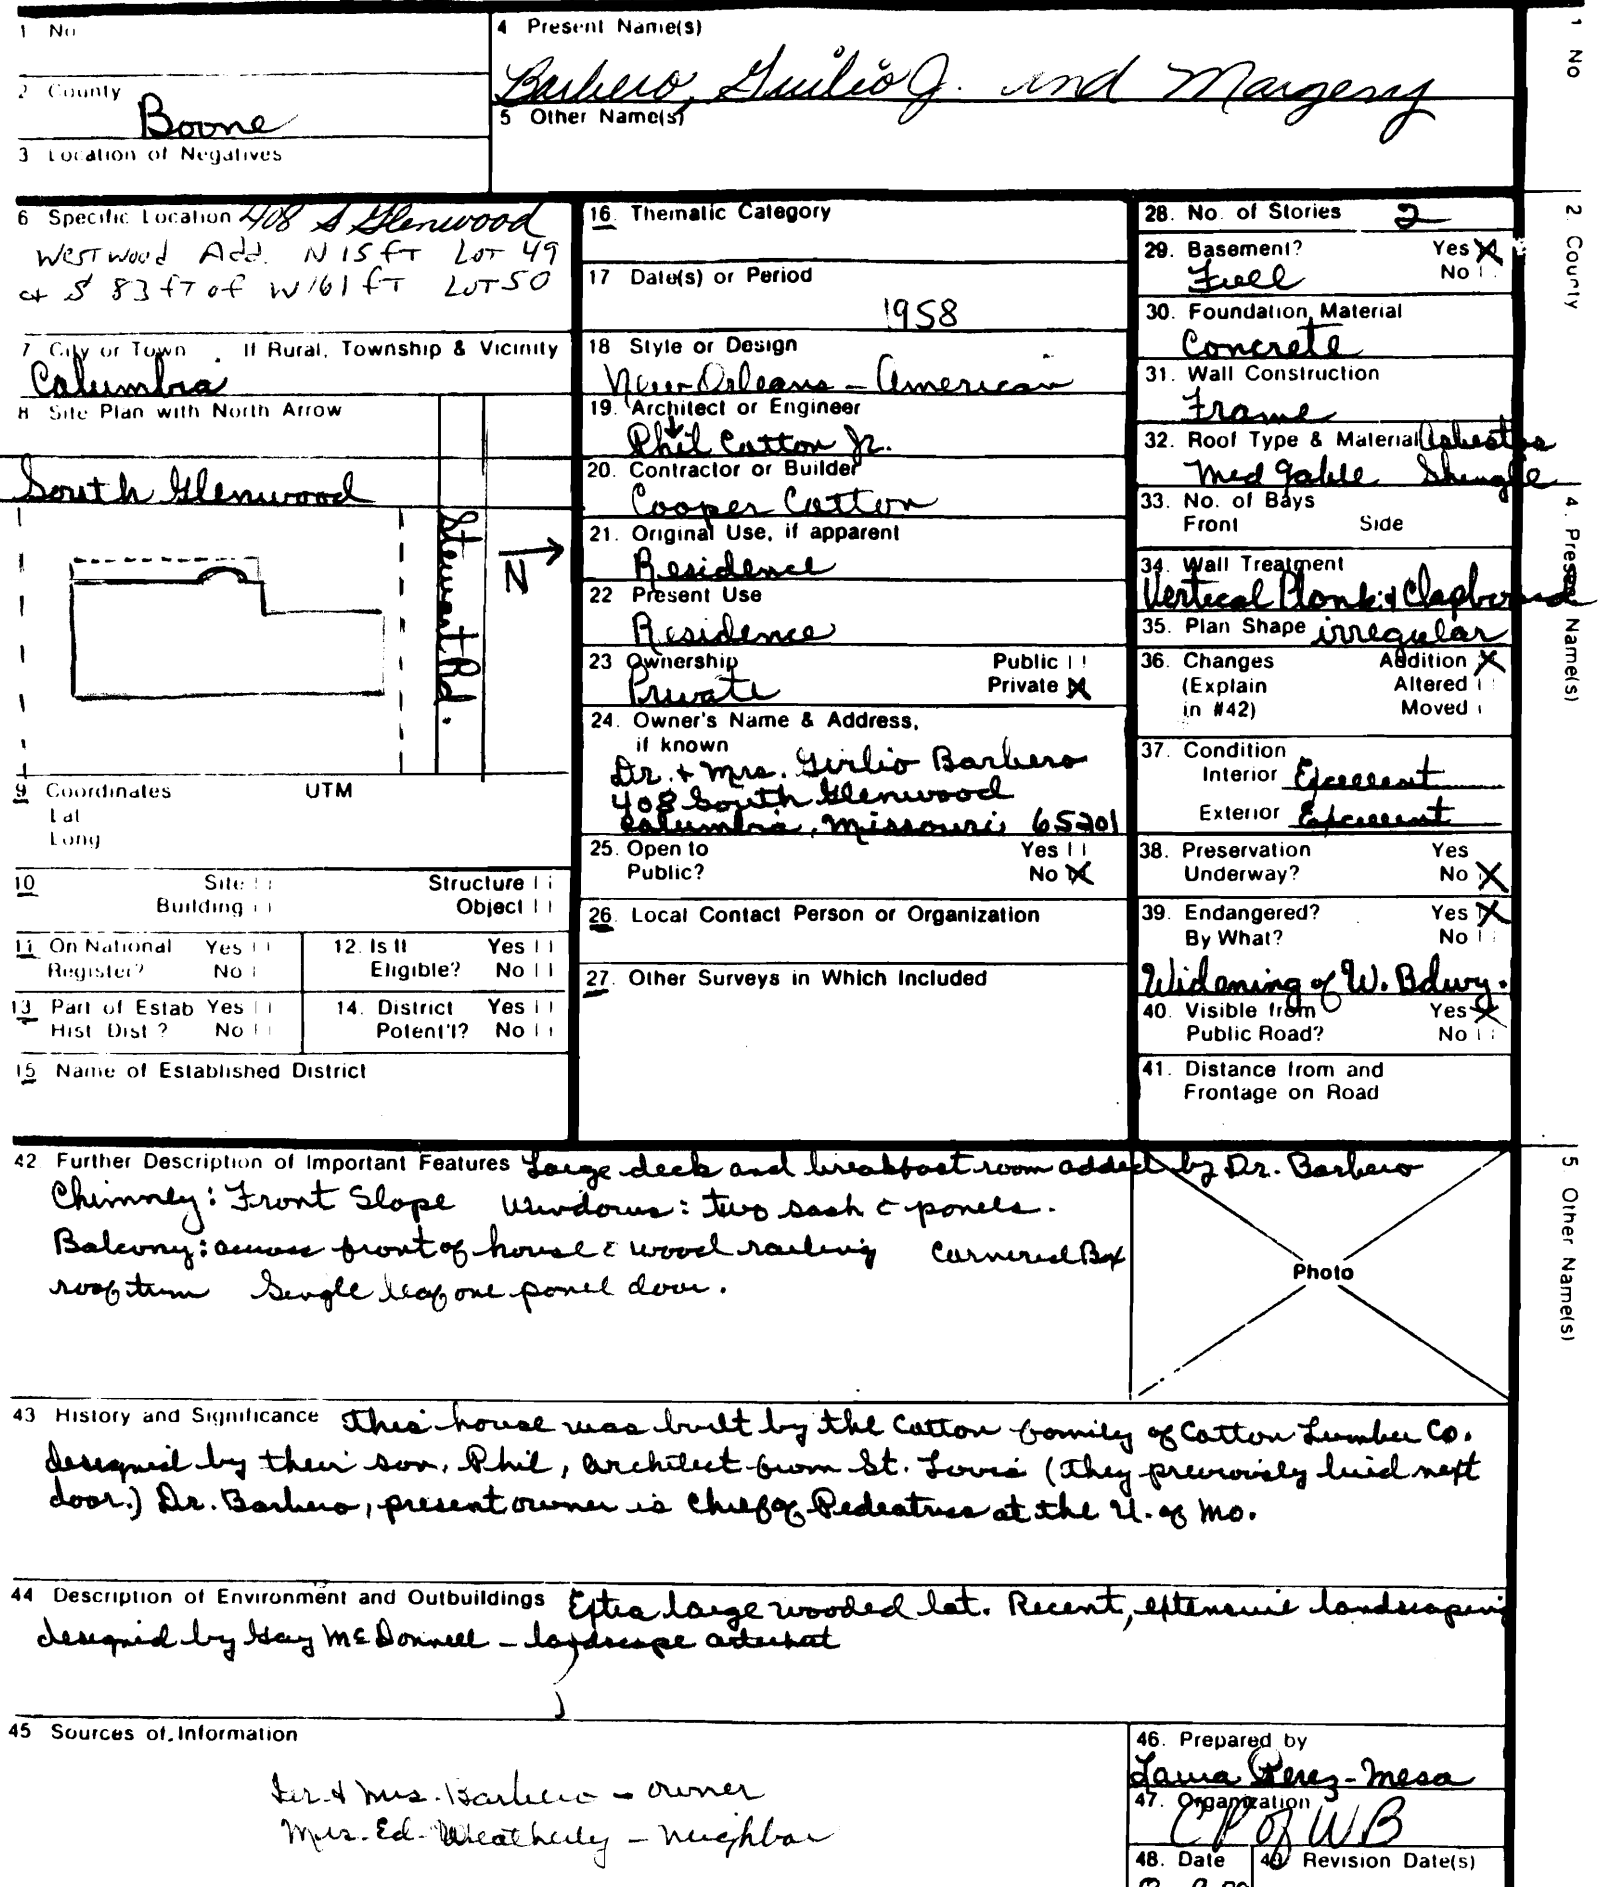 1 No
4 Present Name(s)
Barbero, Guilio J. and Margery
2 County
Boone
5 Other Name(s)
3 Location of Negatives
6 Specific Location 408 S Glenwood
Westwood Add. N 15 ft Lot 49
+ S 83 ft of W 161 ft Lot 50
7 City or Town If Rural, Township & Vicinity
Columbia
8 Site Plan with North Arrow
South Glenwood
Stewart Rd.
N
9 Coordinates UTM
Lat
Long
10 Site Structure
Building Object
11 On National Register? Yes No
12. Is It Eligible? Yes No
13 Part of Estab Hist Dist? Yes No
14. District Potent'l? Yes No
15 Name of Established District
16. Thematic Category
17 Date(s) or Period
1958
18 Style or Design
New Orleans - American
19. Architect or Engineer
Phil Cotton Jr.
20. Contractor or Builder
Cooper Cotton
21. Original Use, if apparent
Residence
22 Present Use
Residence
23 Ownership Public
Private Private X
24. Owner's Name & Address,
if known
Dr. + Mrs. Guilio Barbero
408 South Glenwood
Columbia, Missouri 65201
25. Open to Yes
Public? No X
26. Local Contact Person or Organization
27. Other Surveys in Which Included
28. No. of Stories 2
29. Basement? Yes X
Full No
30. Foundation Material
Concrete
31. Wall Construction
Frame
32. Roof Type & Material Asbestos
Med gable Shingle
33. No. of Bays
Front Side
34. Wall Treatment
Vertical Plank + Clapboard
35. Plan Shape irregular
36. Changes Addition X
(Explain Altered
in #42) Moved
37. Condition
Interior Excellent
Exterior Excellent
38. Preservation Yes
Underway? No X
39. Endangered? Yes X
By What? No
Widening of W. Bdwy.
40. Visible from Yes X
Public Road? No
41. Distance from and
Frontage on Road
42 Further Description of Important Features Large deck and breakfast room added by Dr. Barbero
Chimney: Front Slope Windows: two sash c panels.
Balcony: across front of house c wood railing Cornered Box
roof trim Single leaf one panel door.
Photo
43 History and Significance This house was built by the Cotton family of Cotton Lumber Co.
designed by their son, Phil, architect from St. Louis (They previously lived next
door.) Dr. Barbero, present owner is Chief of Pediatrics at the U. of Mo.
44 Description of Environment and Outbuildings Extra large wooded lot. Recent, extensive landscaping
designed by Gay McDonnell - landscape
45 Sources of Information
Dr. & Mrs. Barbero - owner
Mrs. Ed. Weatherly - neighbor
46. Prepared by
Laura Perez-Mesa
47. Organization
CP of WB
48. Date 49 Revision Date(s)
1 No
2 County
4. Present Name(s)
5 Other Name(s)